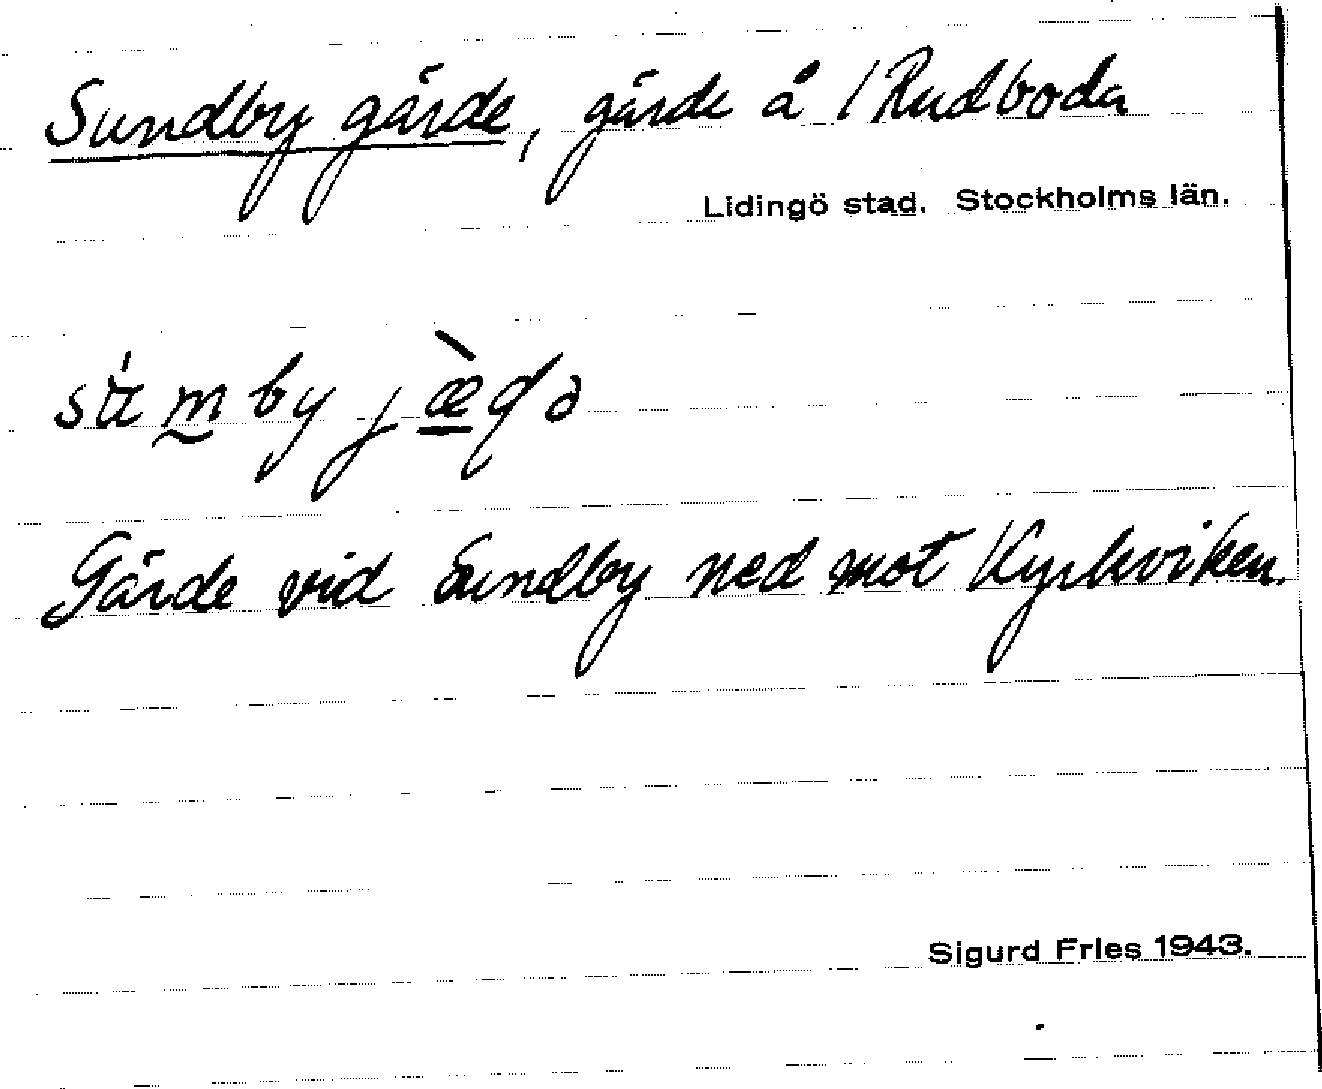 Sundby gärde, gärde å /Rudboda
Lidingö stad. Stockholms län.
Gärde vid Sundby ned mot Kyrkviken.
Sigurd Fries 1943.